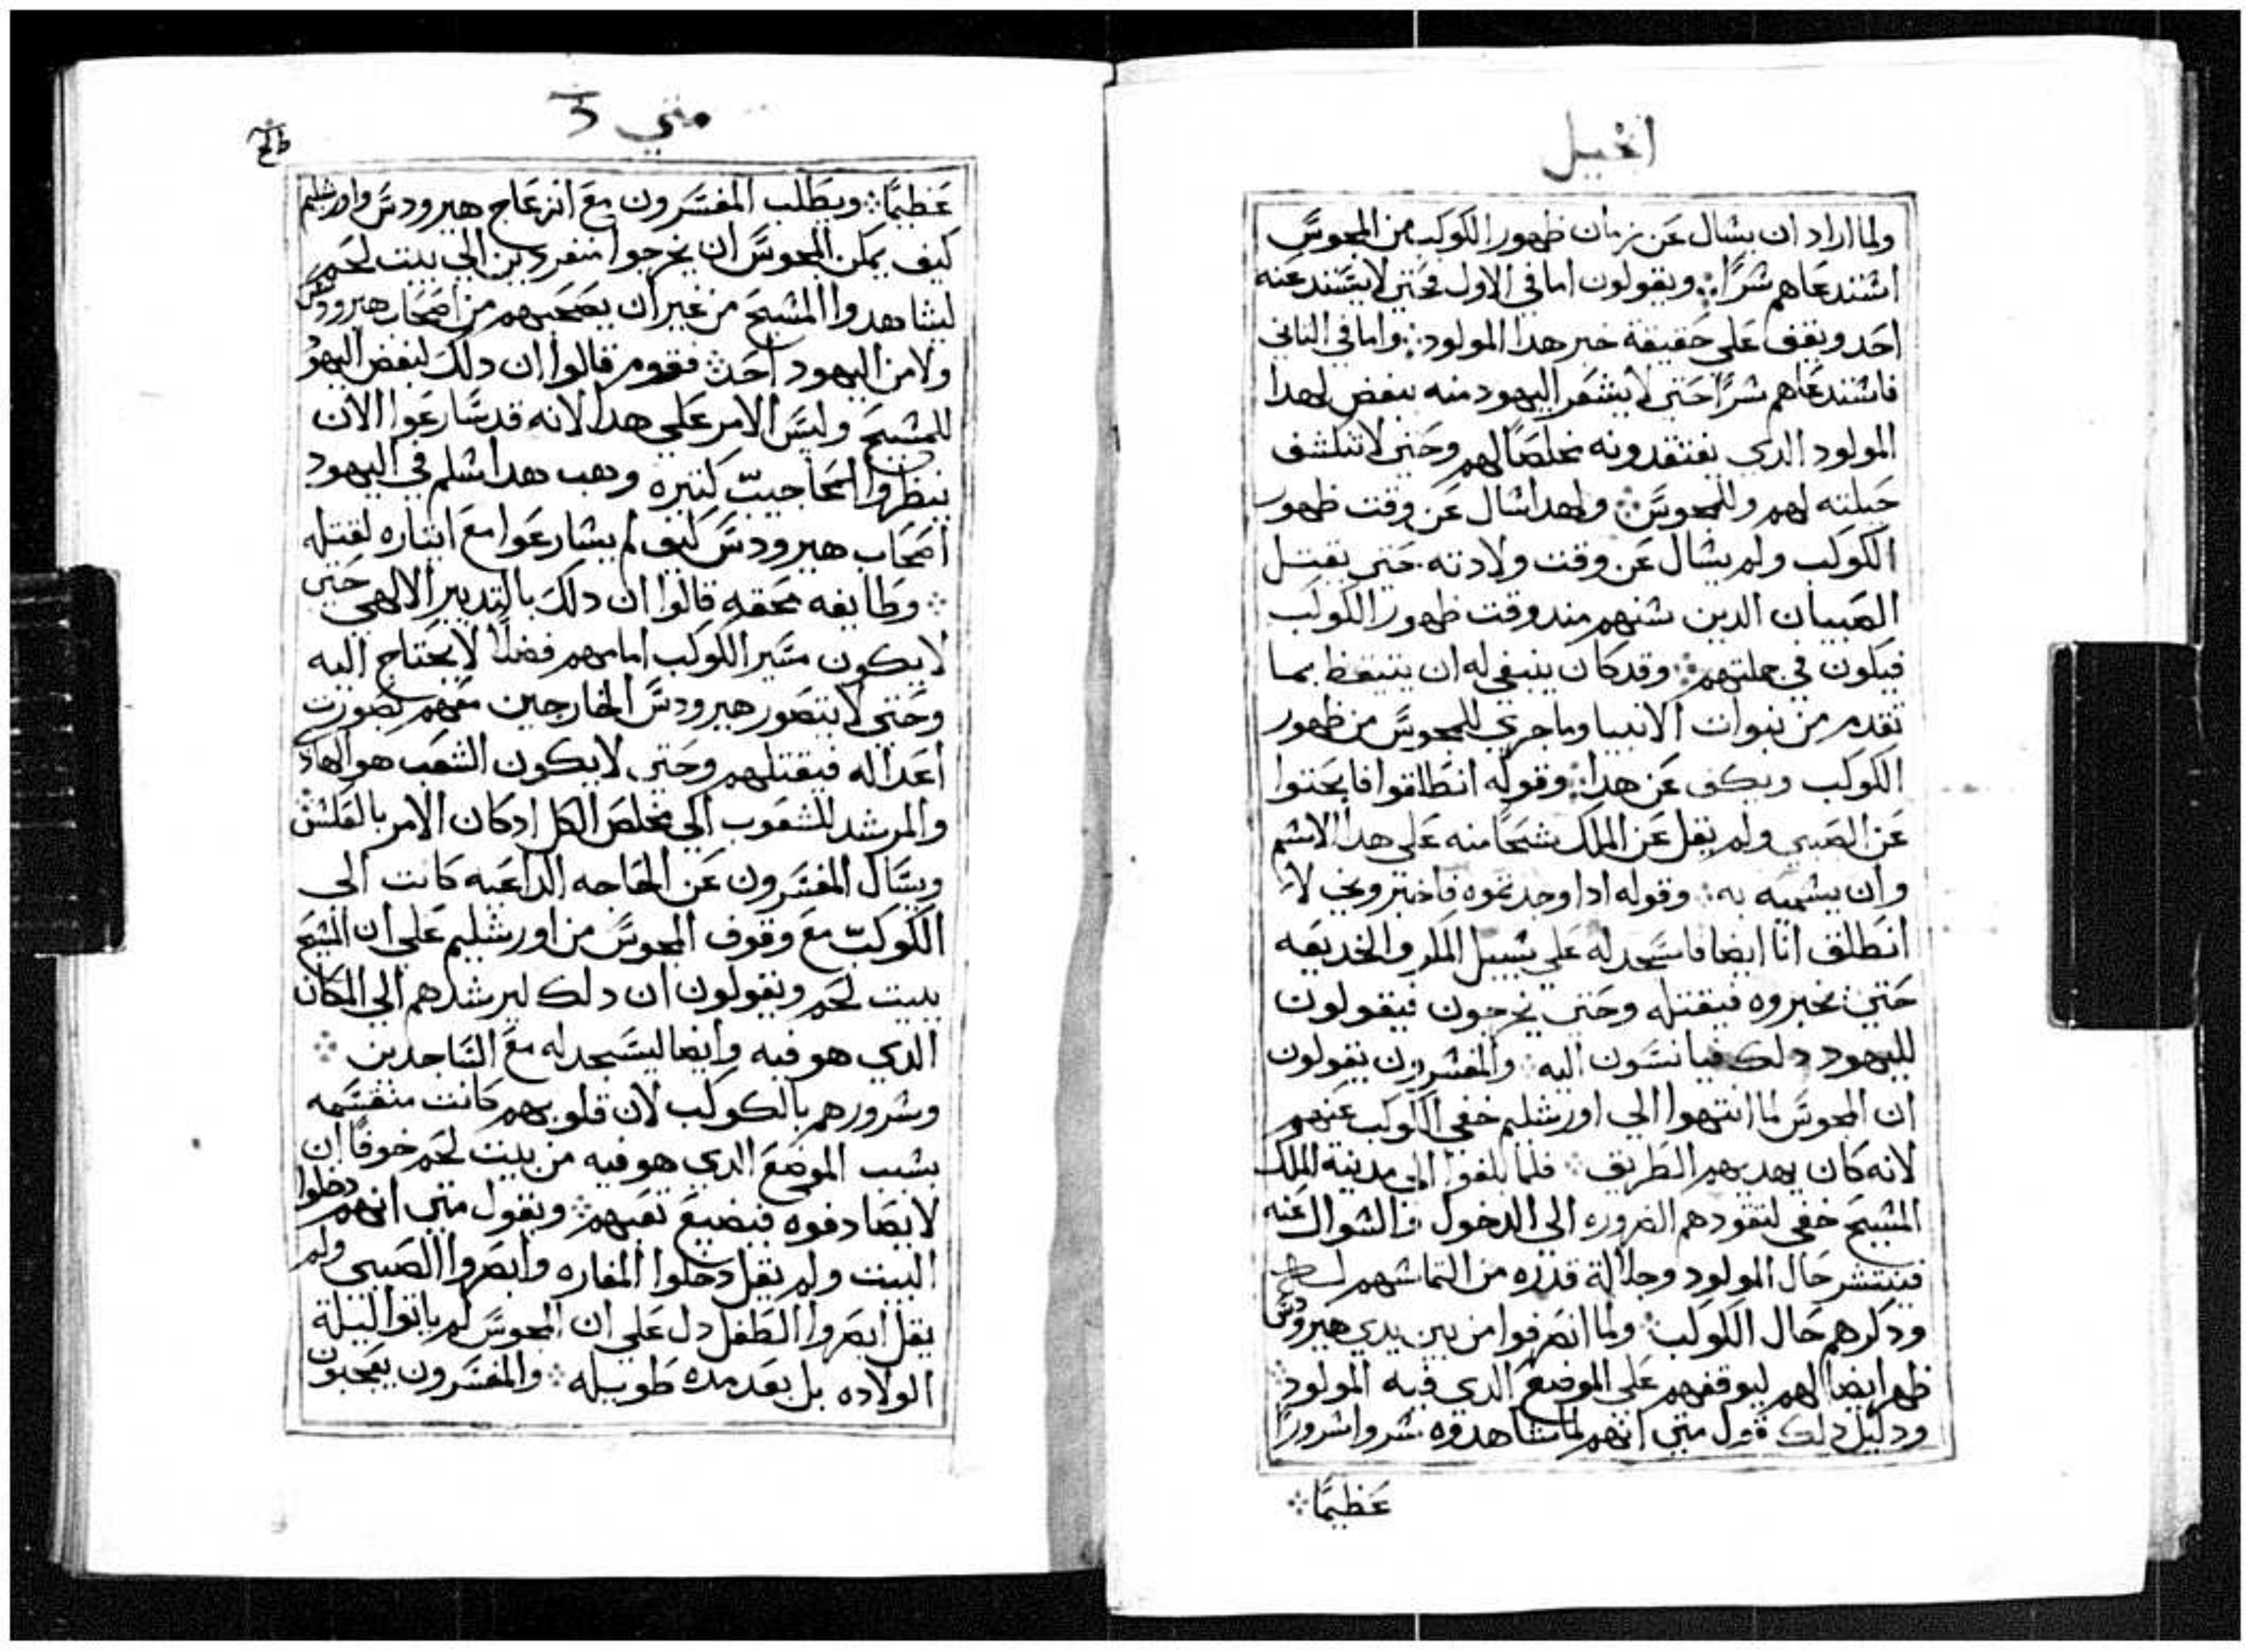 انجيل
ولما اراد ان يشال عن زمان ظهور الكوكب من المجوس
اشتدعاهم شرًا ويقولون اما في الاول فحتى لا يتشند عنه
احد ويقف على حقيقة خبر هدا المولود واما في التاني
فاشتدعاهم شرًا حتى لا يشعر اليهود منه ببغض لهدا
المولود الدي يعتقدونه مخلصًا لهم وحتى لا تنكشف
حيلته لهم وللمجوس ولهدا شال عن وقت ظهور
الكوكب ولم يشال عن وقت ولادته حتى يقتل
الصبيان الدين شنهم مند وقت ظهور الكوكب
فيكون في جملتهم وقد كان ينبغي له ان يتيقظ بما
تقدم من نبوات الانبيا وما جري للمجوس من ظهور
الكوكب ويكف عن هدا وقوله انطلقوا فابحتوا
عن الصبي ولم يقل عن الملك شحًا منه على هدا الاشم
وان يشميه به وقوله ادا وجدتموه فاخبروني لا
انطلق انا ايضا فاسجد له على شبيل المكر والخديعه
حتى يخبروه فيقتله وحتى يخرجون فيقولون
لليهود دلك فيانسون اليه والمفشرون يقولون
ان المجوس لما انتهوا الي اورشليم خفي الكوكب عنهم
لانه كان يهديهم الطريق فلما بلغوا الى مدينة الملك
المشيح خفي لتقودهم الضروره الي الدخول والشوال عنه
فينتشر حال المولود وجلالة قدره من التماشهم له
ودكرهم حال الكوكب ولما انصرفوا من بين يدي هيرودس
ظهر ايضا لهم ليوقفهم على الموضع الدي فيه المولود
ودليل دلك قول متى انهم لما شاهدوه شروا شرورًا
عظيمًا
متي 3
عظيمًا ويطلب المفسرون مع انزعاج هيرودس واورشليم
كيف يمكن المجوس ان يخرجوا منفردين الي بيت لحم
ليشاهدوا المشيح من غير ان يصحبهم من اصحاب هيرودس
ولا من اليهود احدٌ فقوم قالوا ان دلك لبغض اليهود
للمشيح وليس الامر على هدا لانه قد سارعوا الان
ينظروا اعاجيبٌ كتيره وهب هدا شلم في اليهود
اصحاب هيرودس كيف لم يشارعوا مع ايتاره لقتله
وطايفه محقه قالوا ان دلك بالتدبير الالهي حتى
لا يكون مسير الكوكب امامهم فضلًا لا يحتاج اليه
وحتى لا يتصور هيرودس الخارجين معهم بصورت
اعدا له فيقتلهم وحتى لا يكون الشعب هو الهادي
والمرشد للشعوب الي مخلص الكل اد كان الامر بالعكش
ويسال المفسرون عن الحاجه الداعيه كانت الى
الكوكب مع وقوف المجوس من اورشليم على ان المشيح
ببيت لحم ويقولون ان دلك ليرشدهم الي المكان
الدي هو فيه وايضا ليسجد له مع الساجدين
وشرورهم بالكوكب لان قلوبهم كانت منقسمه
بشبب الموضع الدي هو فيه من بيت لحم خوفًا ان
لا يصادفوه فيضيع تعبهم ويقول متى انهم دخلوا
البيت ولم يقل دخلوا المغاره وابصروا الصبي ولم
يقل ابصروا الطفل دل على ان المجوس لم ياتوا ليلة
الولاده بل بعد مده طويله والمفسرون يعجبون